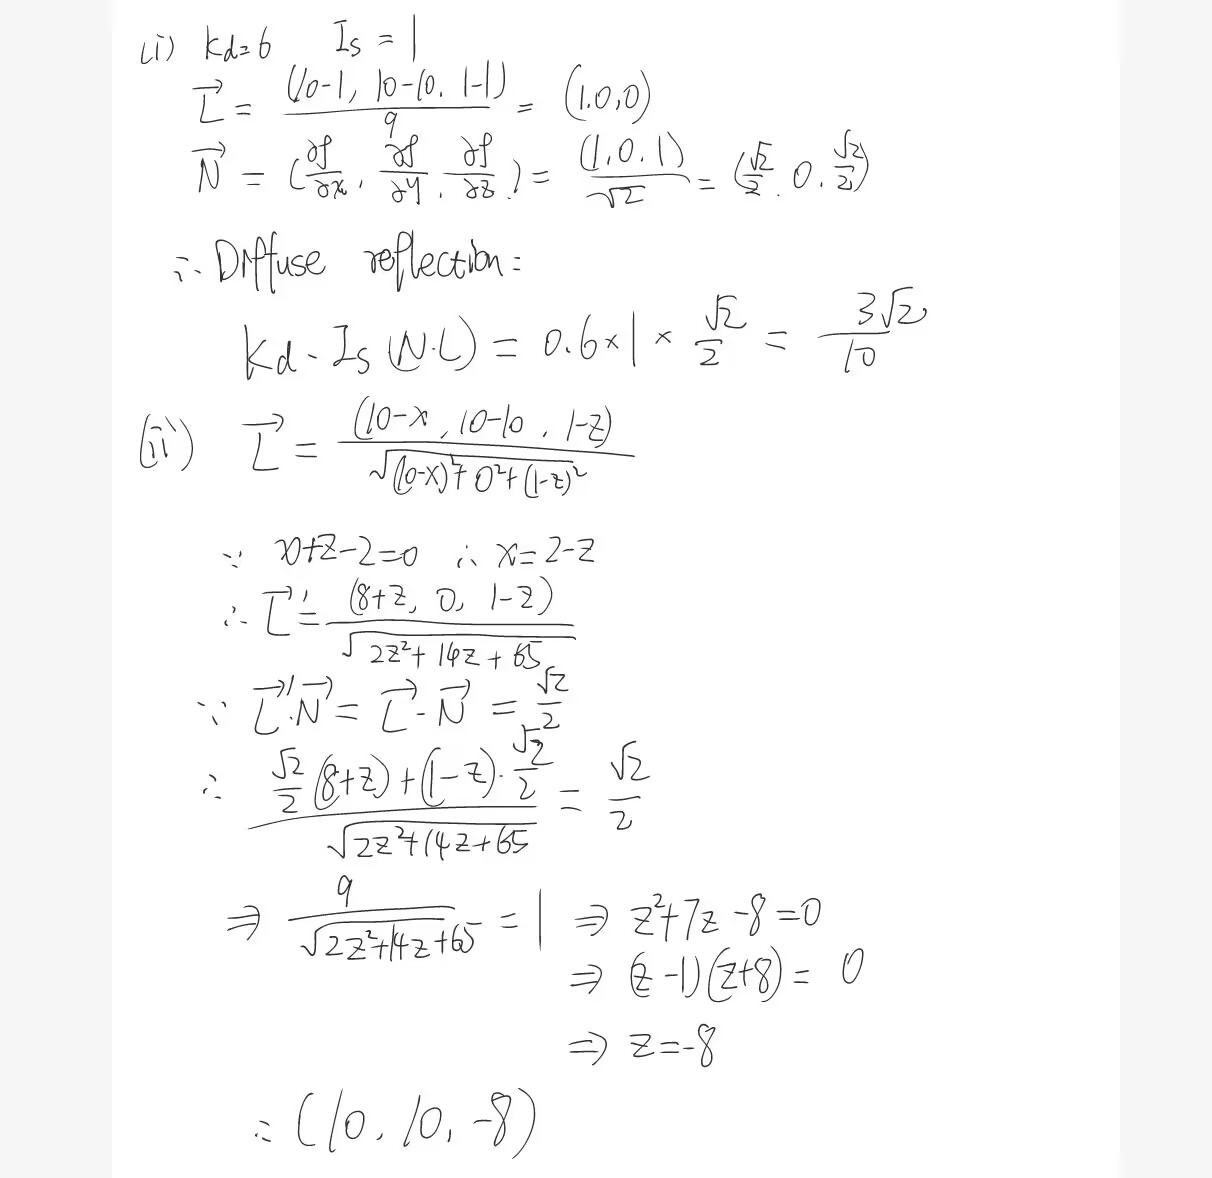 (i) kd=6 Is = 1
L⃗ = (10-1, 10-10, 1-1) / 9 = (1.0,0)
N⃗ = (∂f/∂x, ∂f/∂y, ∂f/∂z) = (1, 0, 1) / √2 = (√2/2, 0. √2/2)
∴ Diffuse reflection:
kd · Is (N·L) = 0.6×1× √2/2 = 3√2/10
(ii) L⃗ = (10-x, 10-10, 1-z) / √((10-x)²+0²+(1-z)²)
∵ x+z-2=0 ∴ x=2-z
∴ L⃗' = (8+z, 0, 1-z) / √(2z²+14z+65)
∵ L⃗'·N⃗ = L⃗·N⃗ = √2/2
∴ (√2/2 (8+z)+(1-z)·√2/2) / √(2z²+14z+65) = √2/2
⇒ 9 / √(2z²+14z+65) = 1 ⇒ z²+7z-8=0
⇒ (z-1)(z+8)= 0
⇒ z=-8
∴ (10, 10, -8)